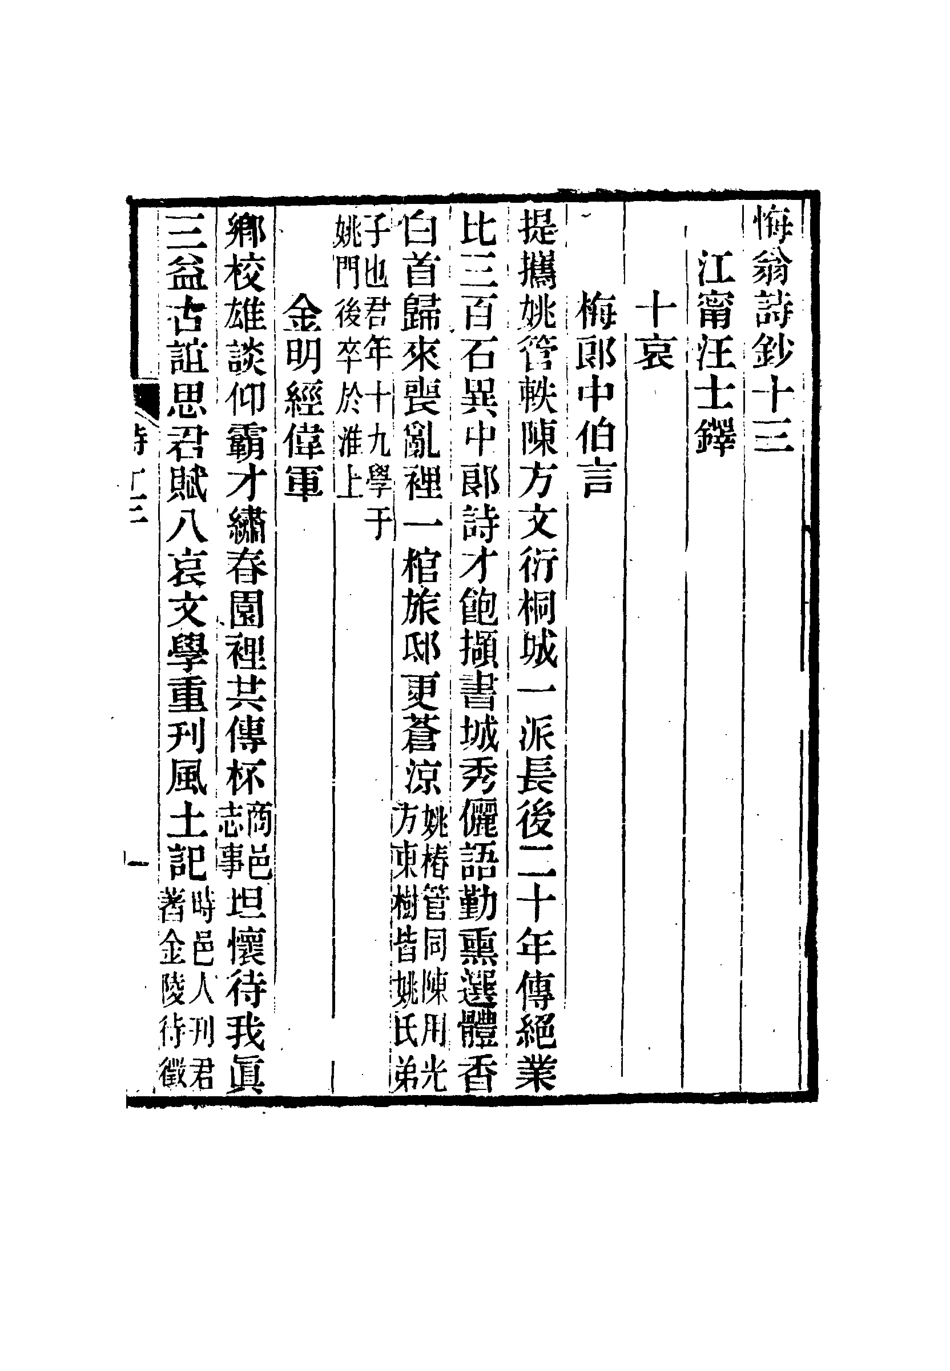 悔翁詩鈔十三
江甯汪士鐸
十哀
梅郎中伯言
提攜姚管軼陳方文衍桐城一派長後二十年傳絕業
比三百石異中郎詩才飽擷書城秀儷語勤熏選體香
白首歸來喪亂裡一棺旅邸更蒼涼姚椿管同陳用光方東樹皆姚氏弟
子也君年十九學于姚門後卒於淮上
金明經偉軍
鄉校雄談仰霸才繡春園裡共傳杯商邑志事坦懷待我眞
三益古誼思君賦八哀文學重刊風土記時邑人刊君著金陵待徵
詩十三
一